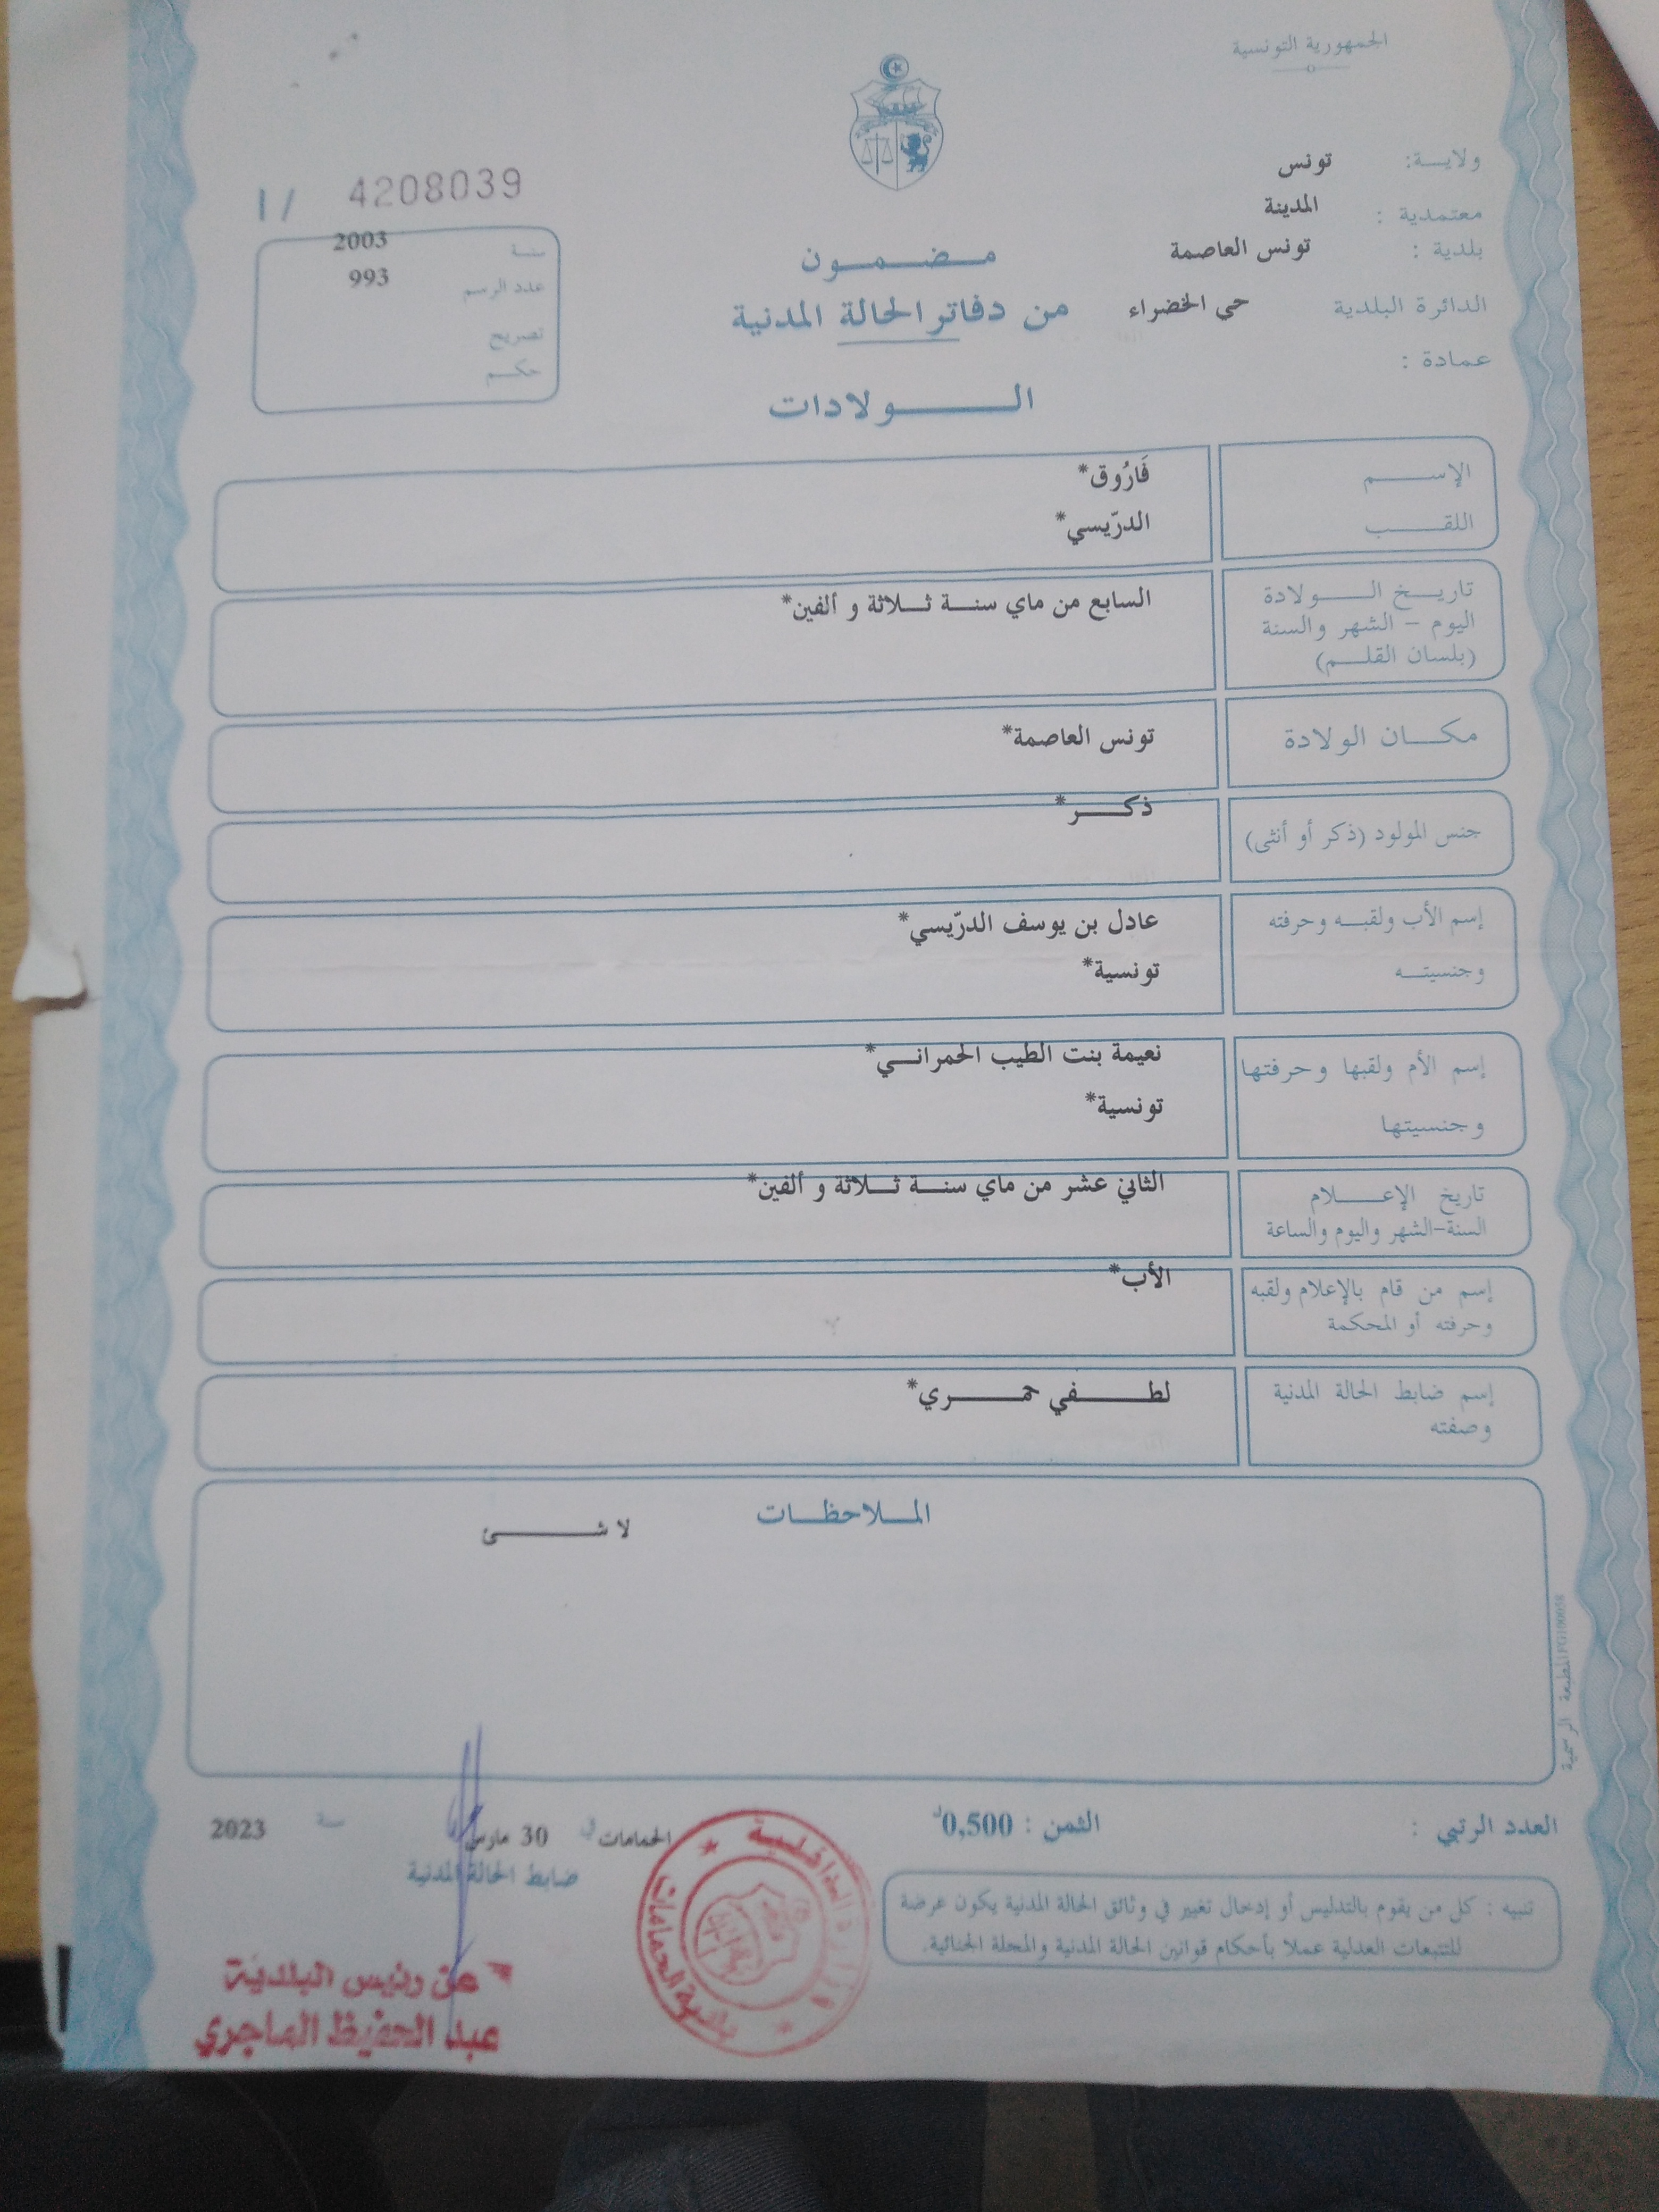 الجمهورية التونسية
ولاية: تونس
معتمدية : المدينة
بلدية : تونس العاصمة
الدائرة البلدية حي الخضراء
عمادة :
1/ 4208039
سنة 2003
عدد الرسم 993
تصريح
حكم
مضمون
من دفاتر الحالة المدنية
الولادات
الإسم فَارُوق*
اللقب الدرّيسي*
تاريخ الولادة السابع من ماي سنة ثلاثة و ألفين*
اليوم - الشهر والسنة
(بلسان القلم)
مكان الولادة تونس العاصمة*
جنس المولود (ذكر أو أنثى) ذكر*
إسم الأب ولقبه وحرفته عادل بن يوسف الدرّيسي*
وجنسيته تونسية*
إسم الأم ولقبها وحرفتها نعيمة بنت الطيب الحمراني*
وجنسيتها تونسية*
تاريخ الإعلام الثاني عشر من ماي سنة ثلاثة و ألفين*
السنة-الشهر واليوم والساعة
إسم من قام بالإعلام ولقبه الأب*
وحرفته أو المحكمة
إسم ضابط الحالة المدنية لطفي حمري*
وصفته
الملاحظات
لا شئ
المطبعة الرسمية
العدد الرتبي :
الثمن : 0,500د
الحمامات في 30 مارس سنة 2023
ضابط الحالة المدنية
تنبيه : كل من يقوم بالتدليس أو إدخال تغيير في وثائق الحالة المدنية يكون عرضة
للتتبعات العدلية عملا بأحكام قوانين الحالة المدنية والمجلة الجنائية.
وزارة الداخلية
بلدية الحمامات
عن رئيس البلدية
عبد الحفيظ الماجري